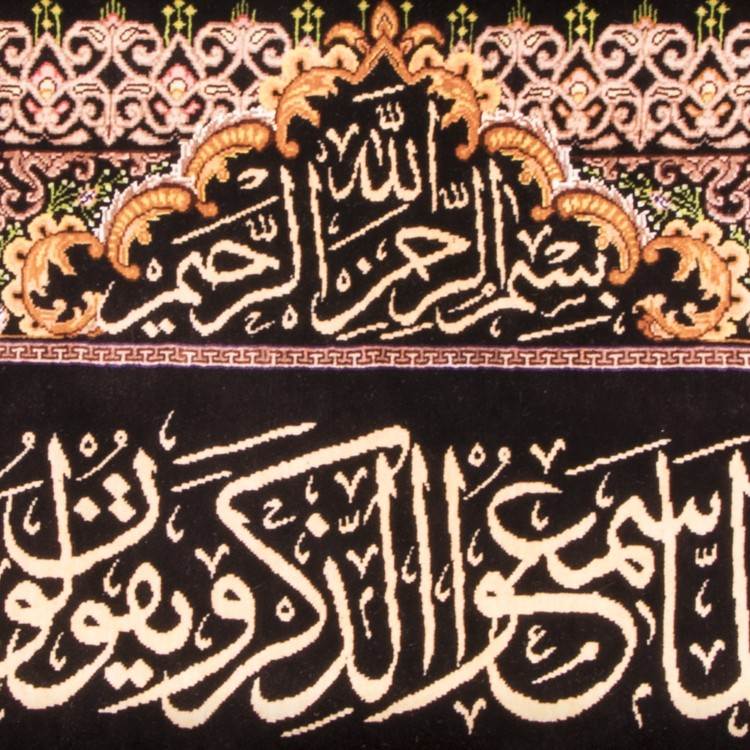 بسم الله الرحمن الرحيم
لما سمعوا الذكر ويقولون